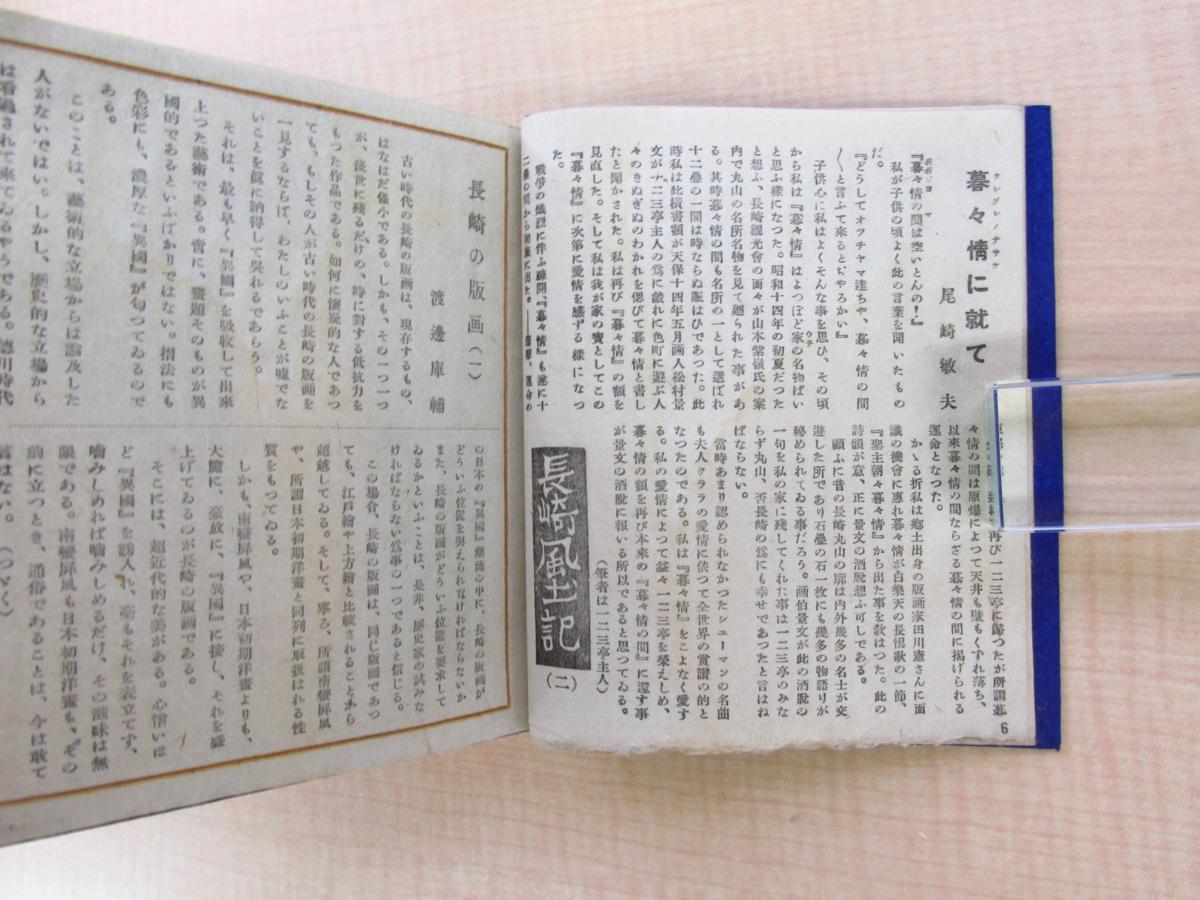 クレグレノナサケ
暮々情に就て
尾崎敏夫
『暮々情の間は空いとんの！』
私が子供の頃よく此の言葉を聞いたもの
だ。
『どうしてオツチヤマ達ちや、暮々情の間
〳〵と言ふて来るとぢやろかい』
子供心に私はよくそんな事を思ひ、その頃
から私は『暮々情』はよつぽど家の名物ばい
ウチ
と思ふ樣になつた。昭和十四年の初夏だつた
と想ふ、長崎觀光會の面々が山本紫嶺氏の案
内で丸山の名所名物を見て廻られた事があ
る。其時暮々情の間も名所の一として選ばれ
十二疊の一間は時ならぬ賑はひであつた。此
時私は此橫書額が天保十四年五月画人松村景
文が一二三亭主人の爲に戯れに色町に遊ぶ人
々のきぬぎぬのわかれを偲びて暮々情と書し
たと聞かされた。私は再び『暮々情』の額を
見直した。そして私は我が家の寶としてこの
『暮々情』に次第に愛情を感ずる樣になつ
た。
戰爭の熾烈に伴ふ疎開、『暮々情』も遂に十
二疊の間から初旅に出た。
再び一二三亭に歸つたが所謂暮
々情の間は原爆によつて天井も壁もくずれ落ち、
以來暮々情の間ならざる暮々情の間に掲げられる
運命となつた。
かゝる折私は鄕土出身の版画家田川憲さんに面
識の機會に惠れ暮々情が白樂天の長恨歌の一節、
『聖主朝々暮々情』から出た事を敎はつた。此の
詩韻が意、正に景文の洒脫想ふ可しである。
顧ふに昔の長崎丸山の廓は内外幾多の名士が交
遊した所であり石疊の石一枚にも幾多の物語りが
秘められてゐる事だろう。画伯景文が此の洒脫の
一句を私の家に残してくれた事は一二三亭のみな
らず丸山、否長崎の爲にも幸せであつたと言はね
ばならない。
當時あまり認められなかつたシューマンの名曲
も夫人クララの愛情に依つて全世界の賞讃の的と
なつたのである。私は『暮々情』をこよなく愛す
る。私の愛情によつて益々一二三亭を榮えしめ、
暮々情の額を再び本来の『暮々情の間』に還す事
が景文の洒脫に報いる所以であると思つてゐる。
（筆者は一二三亭主人）
長崎風土記
（二）
6
長崎の版画（一）
渡邊庫輔
古い時代の長崎の版画は、現存するもの、
はなはだ僅小である。しかも、その一つ一つ
が、後世に残るだけの、時に對する低抗力を
もつた作品である。如何に懷疑的な人であつ
ても、もしその人が古い時代の長崎の版画を
一見するならば、わたしのいふことが嘘でな
いことを眞に納得して吳れるであらう。
それは、最も早く『異國』を吸收して出來
上つた藝術である。啻に、畫題そのものが異
國的であるといふばかりではない。摺法にも
色彩にも、濃厚な『異國』が匂つてゐるので
ある。
このことは、藝術的な立場からは論及した
人がないではい。しかし、歷史的な立場から
は看過されて来てゐるやうである。德川時代
の日本の『異國』潮流の中に、長崎の版画が
どういふ位置を與えられなければならないか
また、長崎の版画がどういふ位置を要求して
ゐるかといふことは、是非、歷史家の試みな
ければならない爲事の一つであると信じる。
この場合、長崎の版画は、同じ版画であつ
ても、江戸繪や上方繪と比較されることから
超越してゐる。そして、寧ろ、所謂南蠻屏風
や、所謂日本初期洋畫と同列に取扱はれる性
質をもつてゐる。
しかも、南蠻屏風や、日本初期洋畫よりも、
大膽に、豪放に、『異國』に接し、それを盛
上げてゐるのが長崎の版画である。
そこには、超近代的な美がある。心憎いほ
ど『異國』を誘入れ、毫もそれを表立てず、
噛みしめれば噛みしめるだけ、その滋味は無
限である。南蠻屏風も日本初期洋畫も、その
前に立つとき、通俗であることは、今は敢て
言はない。（つづく）